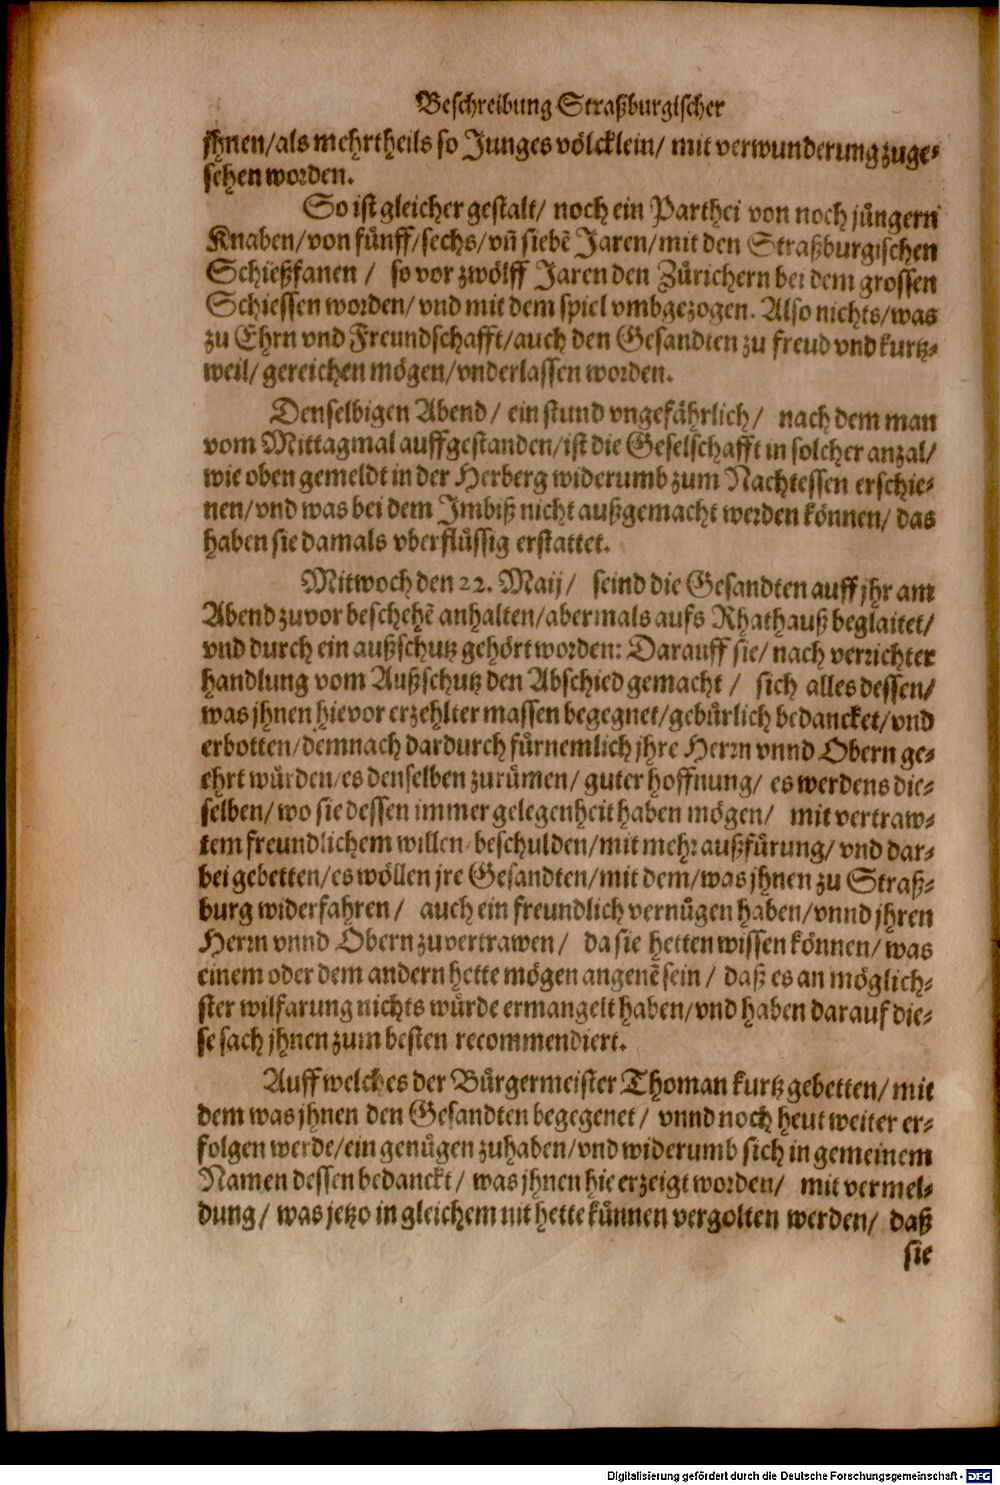 Beschreibung Straßburgischer
jhnen/als mehrtheils so Junges völcklein/ mit verwunderung zuge-
sehen worden.
So ist gleicher gestalt/ noch ein Parthei von noch jüngern
Knaben/von fünff/sechs/vñ siebẽ Jaren/mit den Straßburgischen
Schießfanen / so vor zwölff Jaren den Zürichern bei dem grossen
Schiessen worden/ vnd mit dem spiel vmbgezogen. Also nichts/was
zu Ehrn vnd Freundschafft/auch den Gesandten zu freud vnd kurtz-
weil/ gereichen mögen/vnderlassen worden.
Denselbigen Abend/ ein stund vngefährlich/ nach dem man
vom Mittagmal auffgestanden/ist die Geselschafft in solcher anzal/
wie oben gemeldt in der Herberg widerumb zum Nachtessen erschie-
nen/vnd was bei dem Imbiß nicht außgemacht werden können/ das
haben sie damals vberflüssig erstattet.
Mitwoch den 22. Maij/ seind die Gesandten auff jhr am
Abend zuvor beschehẽ anhalten/abermals aufs Rhathauß beglaitet/
vnd durch ein außschutz gehört worden: Darauff sie/ nach verrichter
handlung vom Außschutz den Abschied gemacht / sich alles dessen/
was jhnen hievor erzehlter massen begegnet/gebürlich bedancket/vnd
erbotten/demnach dardurch fürnemlich jhre Herrn vnnd Obern ge-
ehrt würden/es denselben zurümen/ guter hoffnung/ es werdens die-
selben/ wo sie dessen immer gelegenheit haben mögen/ mit vertraw-
tem freundlichem willen beschulden/mit mehr außfürung/ vnd dar-
bei gebetten/es wöllen jre Gesandten/mit dem/was jhnen zu Straß-
burg widerfahren / auch ein freundlich vernügen haben/vnnd jhren
Herrn vnnd Obern zuvertrawen / da sie hetten wissen können/ was
einem oder dem andern hette mögen angenẽ sein / daß es an möglich-
ster wilfarung nichts würde ermangelt haben/vnd haben darauf die-
se sach jhnen zum besten recommendiert.
Auff welches der Bürgermeister Thoman kurtz gebetten/ mit
dem was jhnen den Gesandten begegenet / vnnd noch heut weiter er-
folgen werde/ein genügen zuhaben/vnd widerumb sich in gemeinem
Namen dessen bedanckt/ was jhnen hie erzeigt worden/ mit vermel-
dung/ was jetzo in gleichem nit hette künnen vergolten werden/ daß
sie
Digitalisierung gefördert durch die Deutsche Forschungsgemeinschaft - DFG